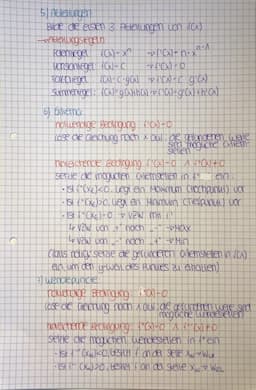 5) Ableitungen
Bilde die ersten 3 Ableitungen von f(x)
→ Ableitungsregeln
Potenzregel: f(x)=x^n → f'(x)=n·x^n-1
Konstantenregel: f(x)=C → f'(x)=0
Faktorregel: f(x)=c·g(x) → f'(x)=c·g'(x)
Summenregel: f(x)=g(x)+h(x) → f'(x)=g'(x)+h'(x)
6) Extrema
notwendige Bedingung f'(x)=0
Löse die Gleichung nach x auf, die gefundenen Werte
sind mögliche Extrem-
stellen
hinreichende Bedingung f'(x)=0 ∧ f''(x)≠0
setze die möglichen Extremstellen in f'' ein:
· ist f''(xE)<0, liegt ein Maximum (Hochpunkt) vor
· ist f''(xE)>0, liegt ein Minimum (Tiefpunkt) vor
· ist f''(xE)=0 → VZW mit f'
↳ VZW von "+" nach "-" → Max
↳ VZW von "-" nach "+" → Min
(falls nötig: setze die gefundenen Extremstellen in f(x)
ein, um den y-Wert des Punktes zu erhalten)
7) Wendepunkte
notwendige Bedingung: f''(x)=0
Löse die Gleichung nach x auf, die gefundenen Werte sind
mögliche Wendestellen
hinreichende Bedingung: f''(x)=0 ∧ f'''(x)≠0
setze die möglichen Wendestellen in f''' ein
- ist f'''(xw)<0, besitzt f an der Stelle xw →
- ist f'''(xw)>0, besitzt f an der Stelle xw →